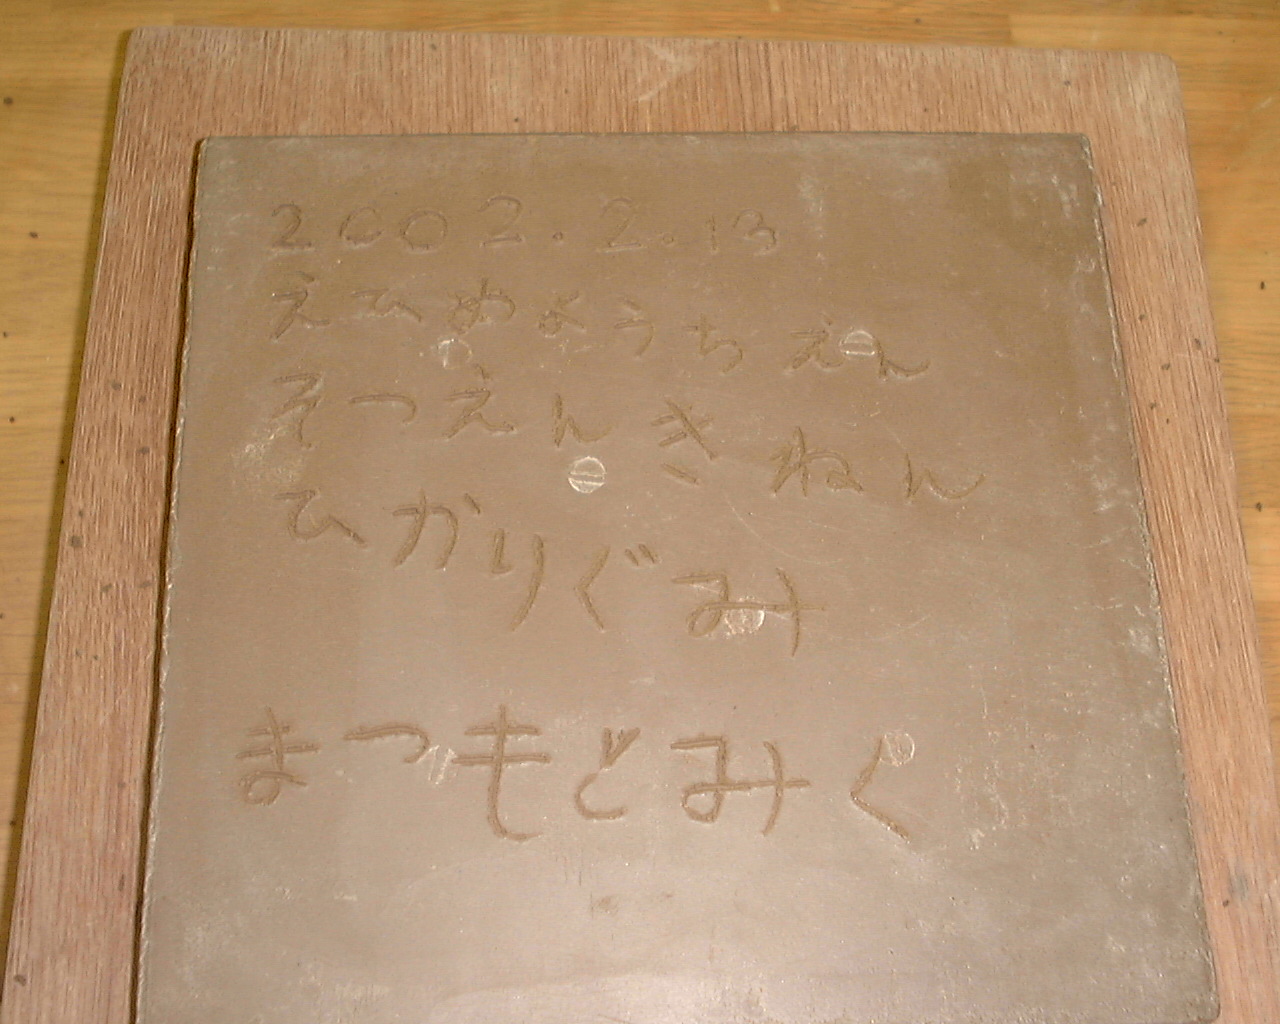 2002.2.13
えひめようちえん
そつえんきねん
ひかりぐみ
まつもとみく